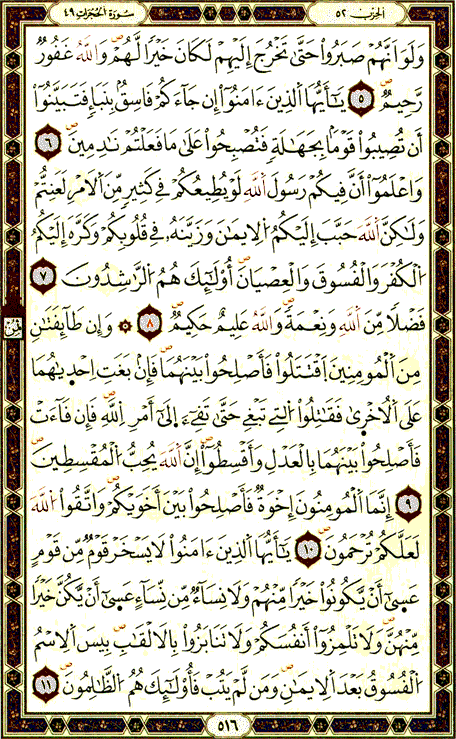 الحزب ٥٢
سورة الحجرات ٤٩
وَلَوَ اَنَّهُمْ صَبَرُواْ حَتَّىٰ تَخْرُجَ إِلَيْهِمْ لَكَانَ خَيْراً لَّهُمْ وَاللَّهُ غَفُورٌ
رَّحِيمٌ ٥ يَٰأَيُّهَا اَلذِينَ ءَامَنُواْ إِن جَآءَكُمْ فَاسِقُۢ بِنَبَإٖ فَتَبَيَّنُواْ
أَن تُصِيبُواْ قَوْماَۢ بِجَهَٰلَةٖ فَتُصْبِحُواْ عَلَىٰ مَا فَعَلْتُمْ نَٰدِمِينَ ٦
وَاعْلَمُواْ أَنَّ فِيكُمْ رَسُولَ اَللَّهِ لَوْ يُطِيعُكُمْ فِي كَثِيرٖ مِّنَ اَلَامْرِ لَعَنِتُّمْ
وَلَٰكِنَّ اَللَّهَ حَبَّبَ إِلَيْكُمُ اُلِايمَٰنَ وَزَيَّنَهُۥ فِي قُلُوبِكُمْ وَكَرَّهَ إِلَيْكُمُ
اُلْكُفْرَ وَالْفُسُوقَ وَالْعِصْيَانَ أُوْلَٰٓئِكَ هُمُ اُلرَّٰشِدُونَ ٧
فَضْلاً مِّنَ اَللَّهِ وَنِعْمَةً وَاللَّهُ عَلِيمٌ حَكِيمٌ ٨ ۞ وَإِن طَآئِفَتَٰنِ
مِنَ اَلْمُومِنِينَ اَقْتَتَلُواْ فَأَصْلِحُواْ بَيْنَهُمَا فَإِنۢ بَغَتِ اِحْدَىٰهُمَا
عَلَى اَلُاخْرَىٰ فَقَٰتِلُواْ اُلتِي تَبْغِي حَتَّىٰ تَفِيٓءَ اِلَىٰٓ أَمْرِ اِللَّهِ فَإِن فَآءَتْ
فَأَصْلِحُواْ بَيْنَهُمَا بِالْعَدْلِ وَأَقْسِطُواْ إِنَّ اَللَّهَ يُحِبُّ اُلْمُقْسِطِينَ
٩ إِنَّمَا اَلْمُومِنُونَ إِخْوَةٌ فَأَصْلِحُواْ بَيْنَ أَخَوَيْكُمْ وَاتَّقُواْ اُللَّهَ
لَعَلَّكُمْ تُرْحَمُونَ ١٠ يَٰأَيُّهَا اَلذِينَ ءَامَنُواْ لَا يَسْخَرْ قَوْمٌ مِّن قَوْمٍ
عَسَىٰٓ أَنْ يَّكُونُواْ خَيْراً مِّنْهُمْ وَلَا نِسَآءٌ مِّن نِّسَآءٍ عَسَىٰٓ أَنْ يَّكُنَّ خَيْراً
مِّنْهُنَّ وَلَا تَلْمِزُوٓاْ أَنفُسَكُمْ وَلَا تَنَابَزُواْ بِالَالْقَٰبِ بِيسَ اَلِاسْمُ
اُلْفُسُوقُ بَعْدَ اَلِايمَٰنِ وَمَن لَّمْ يَتُبْ فَأُوْلَٰٓئِكَ هُمُ اُلظَّٰلِمُونَ ١١
ثمن
٥١٦